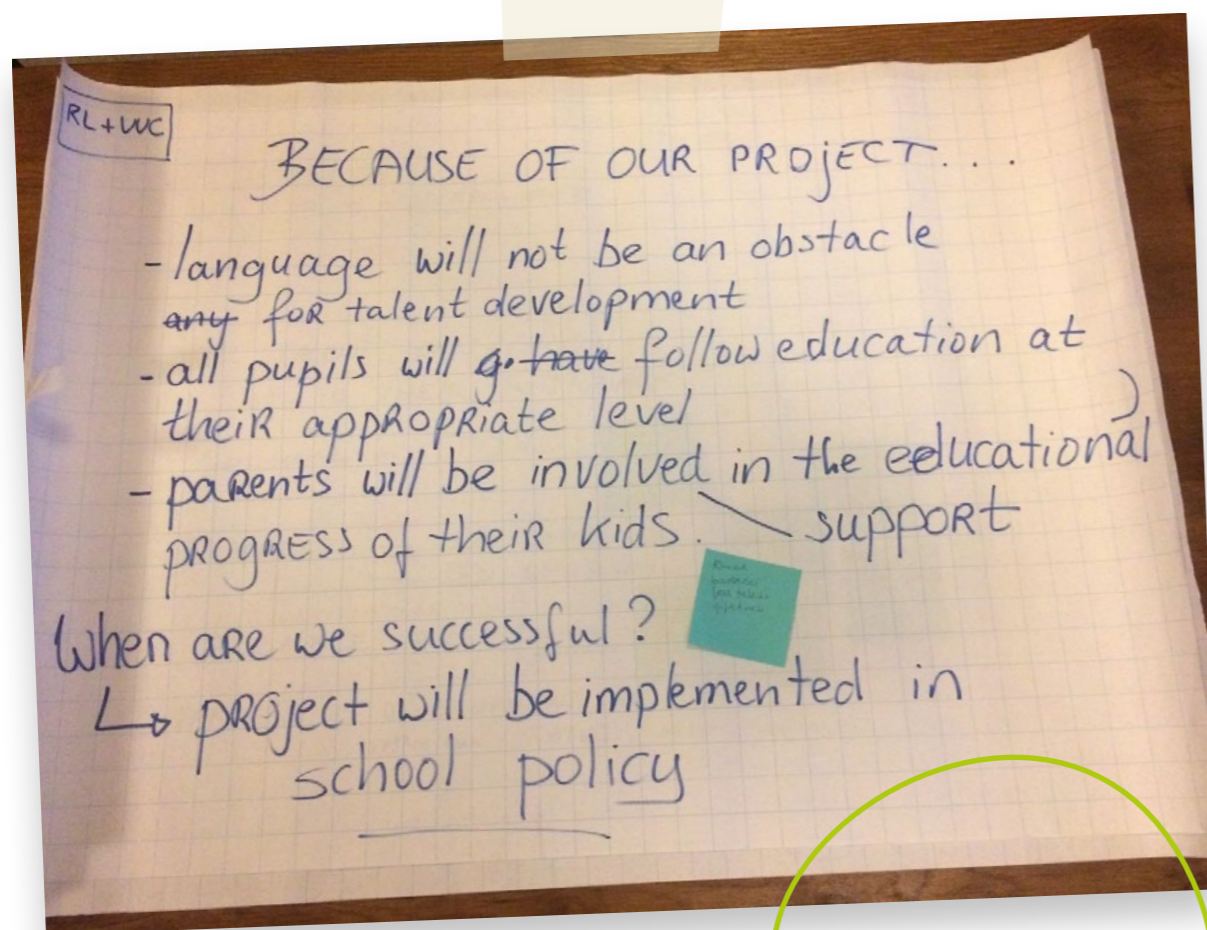 RL+VVC
BECAUSE OF OUR PROJECT...
- language will not be an obstacle
any for talent development
- all pupils will go have follow education at
their appropriate level
- parents will be involved in the educational
progress of their kids. support
When are we successful?
↳ project will be implemented in
school policy